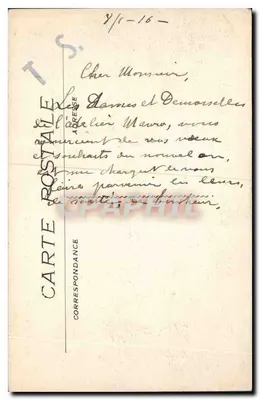 7/1-16-
T S.
Cher Monsieur,
Les Dames et Demoiselles
de l'atelier Mavro, vous
remercient de vos vœux
et souhaits du nouvel an,
et me chargent de vous
faire parvenir les leurs,
de santé et bonheur,
CARTE POSTALE
ADRESSE
CORRESPONDANCE